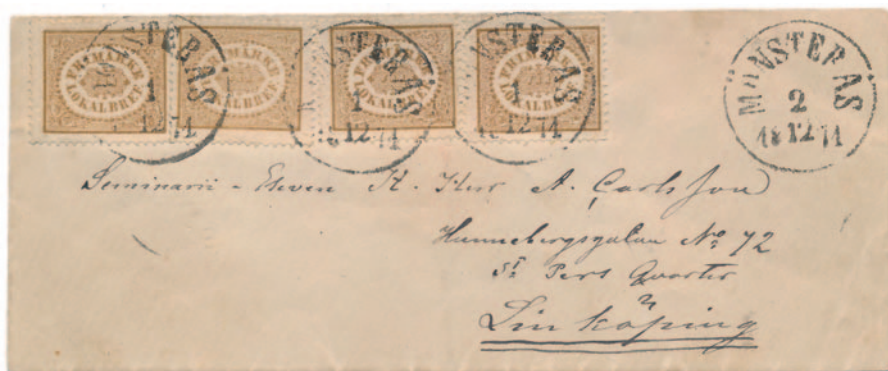 FRIMÄRKE LOKALBREF
FRIMÄRKE LOKALBREF
FRIMÄRKE LOKALBREF
FRIMÄRKE LOKALBREF
MÖNSTERÅS 1 12 71
MÖNSTERÅS 1 18 12 71
MÖNSTERÅS 1 18 12 71
MÖNSTERÅS 2 18 12 71
Seminarii-Eleven H. Herr A. Carlsson
Hunnebergsgatan No 72
St Pers Quarter
Linköping